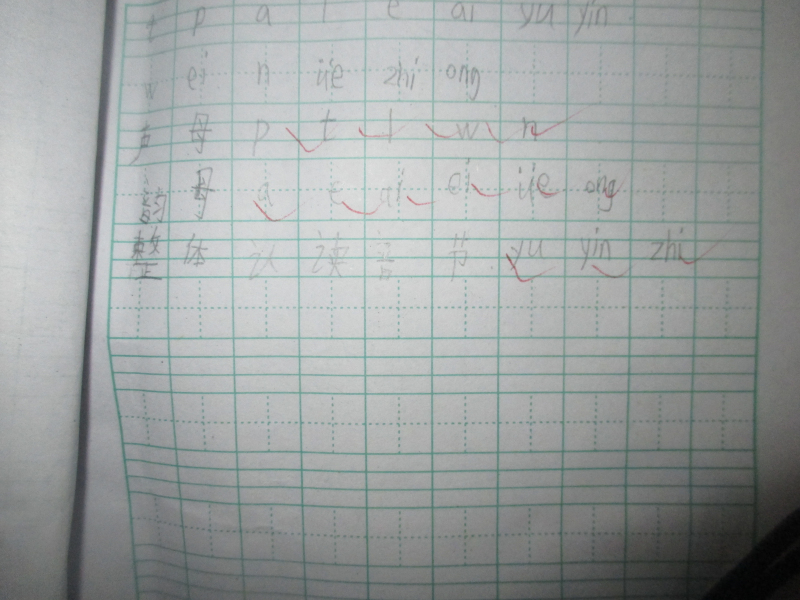 t p a l e ai yu yin
w ei n üe zhi ong
声 母 p t l w n
韵 母 a e ai ei üe ong
整 体 认 读 音 节 yu yin zhi